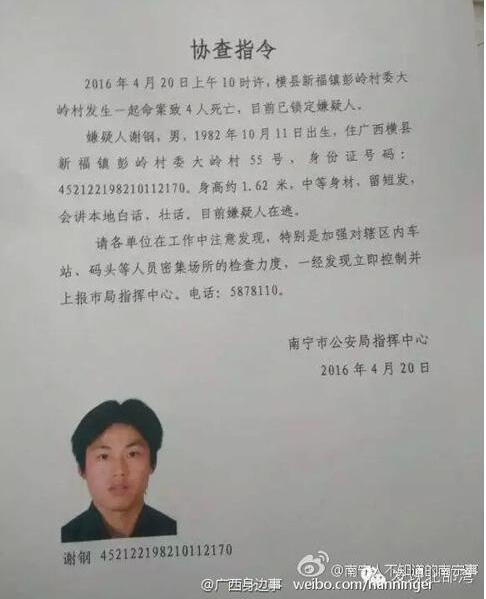 协查指令
2016年4月20日上午10时许，横县新福镇彭岭村委大
岭村发生一起命案致4人死亡，目前已锁定嫌疑人。
嫌疑人谢钢，男，1982年10月11日出生，住广西横县
新福镇彭岭村委大岭村55号，身份证号码：
452122198210112170。身高约1.62米，中等身材，留短发，
会讲本地白话、壮话。目前嫌疑人在逃。
请各单位在工作中注意发现，特别是加强对辖区内车
站、码头等人员密集场所的检查力度，一经发现立即控制并
上报市局指挥中心。电话：5878110。
南宁市公安局指挥中心
2016年4月20日
谢钢 452122198210112170
@南宁人不知道的南宁事
@广西身边事 weibo.com/nanningei